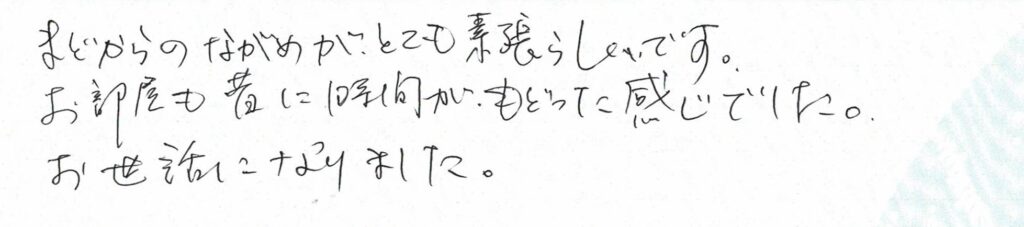 まどからのながめが、とても素張らしいです。
お部屋も昔に時間が、もどった感じでした。
お世話になりました。